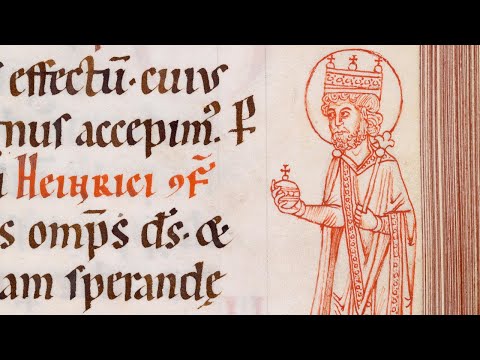 s effectū· cuius
gnus accepim᾽. ꝑ
i Heinrici ꝯf̄
s omp̄s d̄s· &
am sperandę